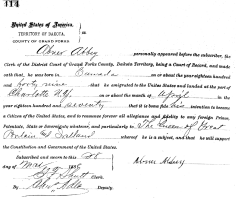 114
United States of America,
TERRITORY OF DAKOTA,
COUNTY OF GRAND FORKS
Abner Abbey personally appeared before the subscriber, the
Clerk of the District Court of Grand Forks County, Dakota Territory, being a Court of Record, and made
oath that he was born in Canada on or about the year eighteen hundred
and forty nine that he emigrated to the United States and landed at the port of
Charlotte N.Y. on or about the month of April in the year
eighteen hundred and seventy that it is bona fide his intention to become
a citizen of the United States, and to renounce forever all allegiance and fidelity to any foreign Prince,
Potentate, State or Sovereignty whatever, and particularly to The Queen of Great
Britain & Ireland whereof he is a subject, and that he will support
the Constitution of the United States.
Subscribed and sworn to this
day of
Abner Abbey
Clerk
By Deputy.